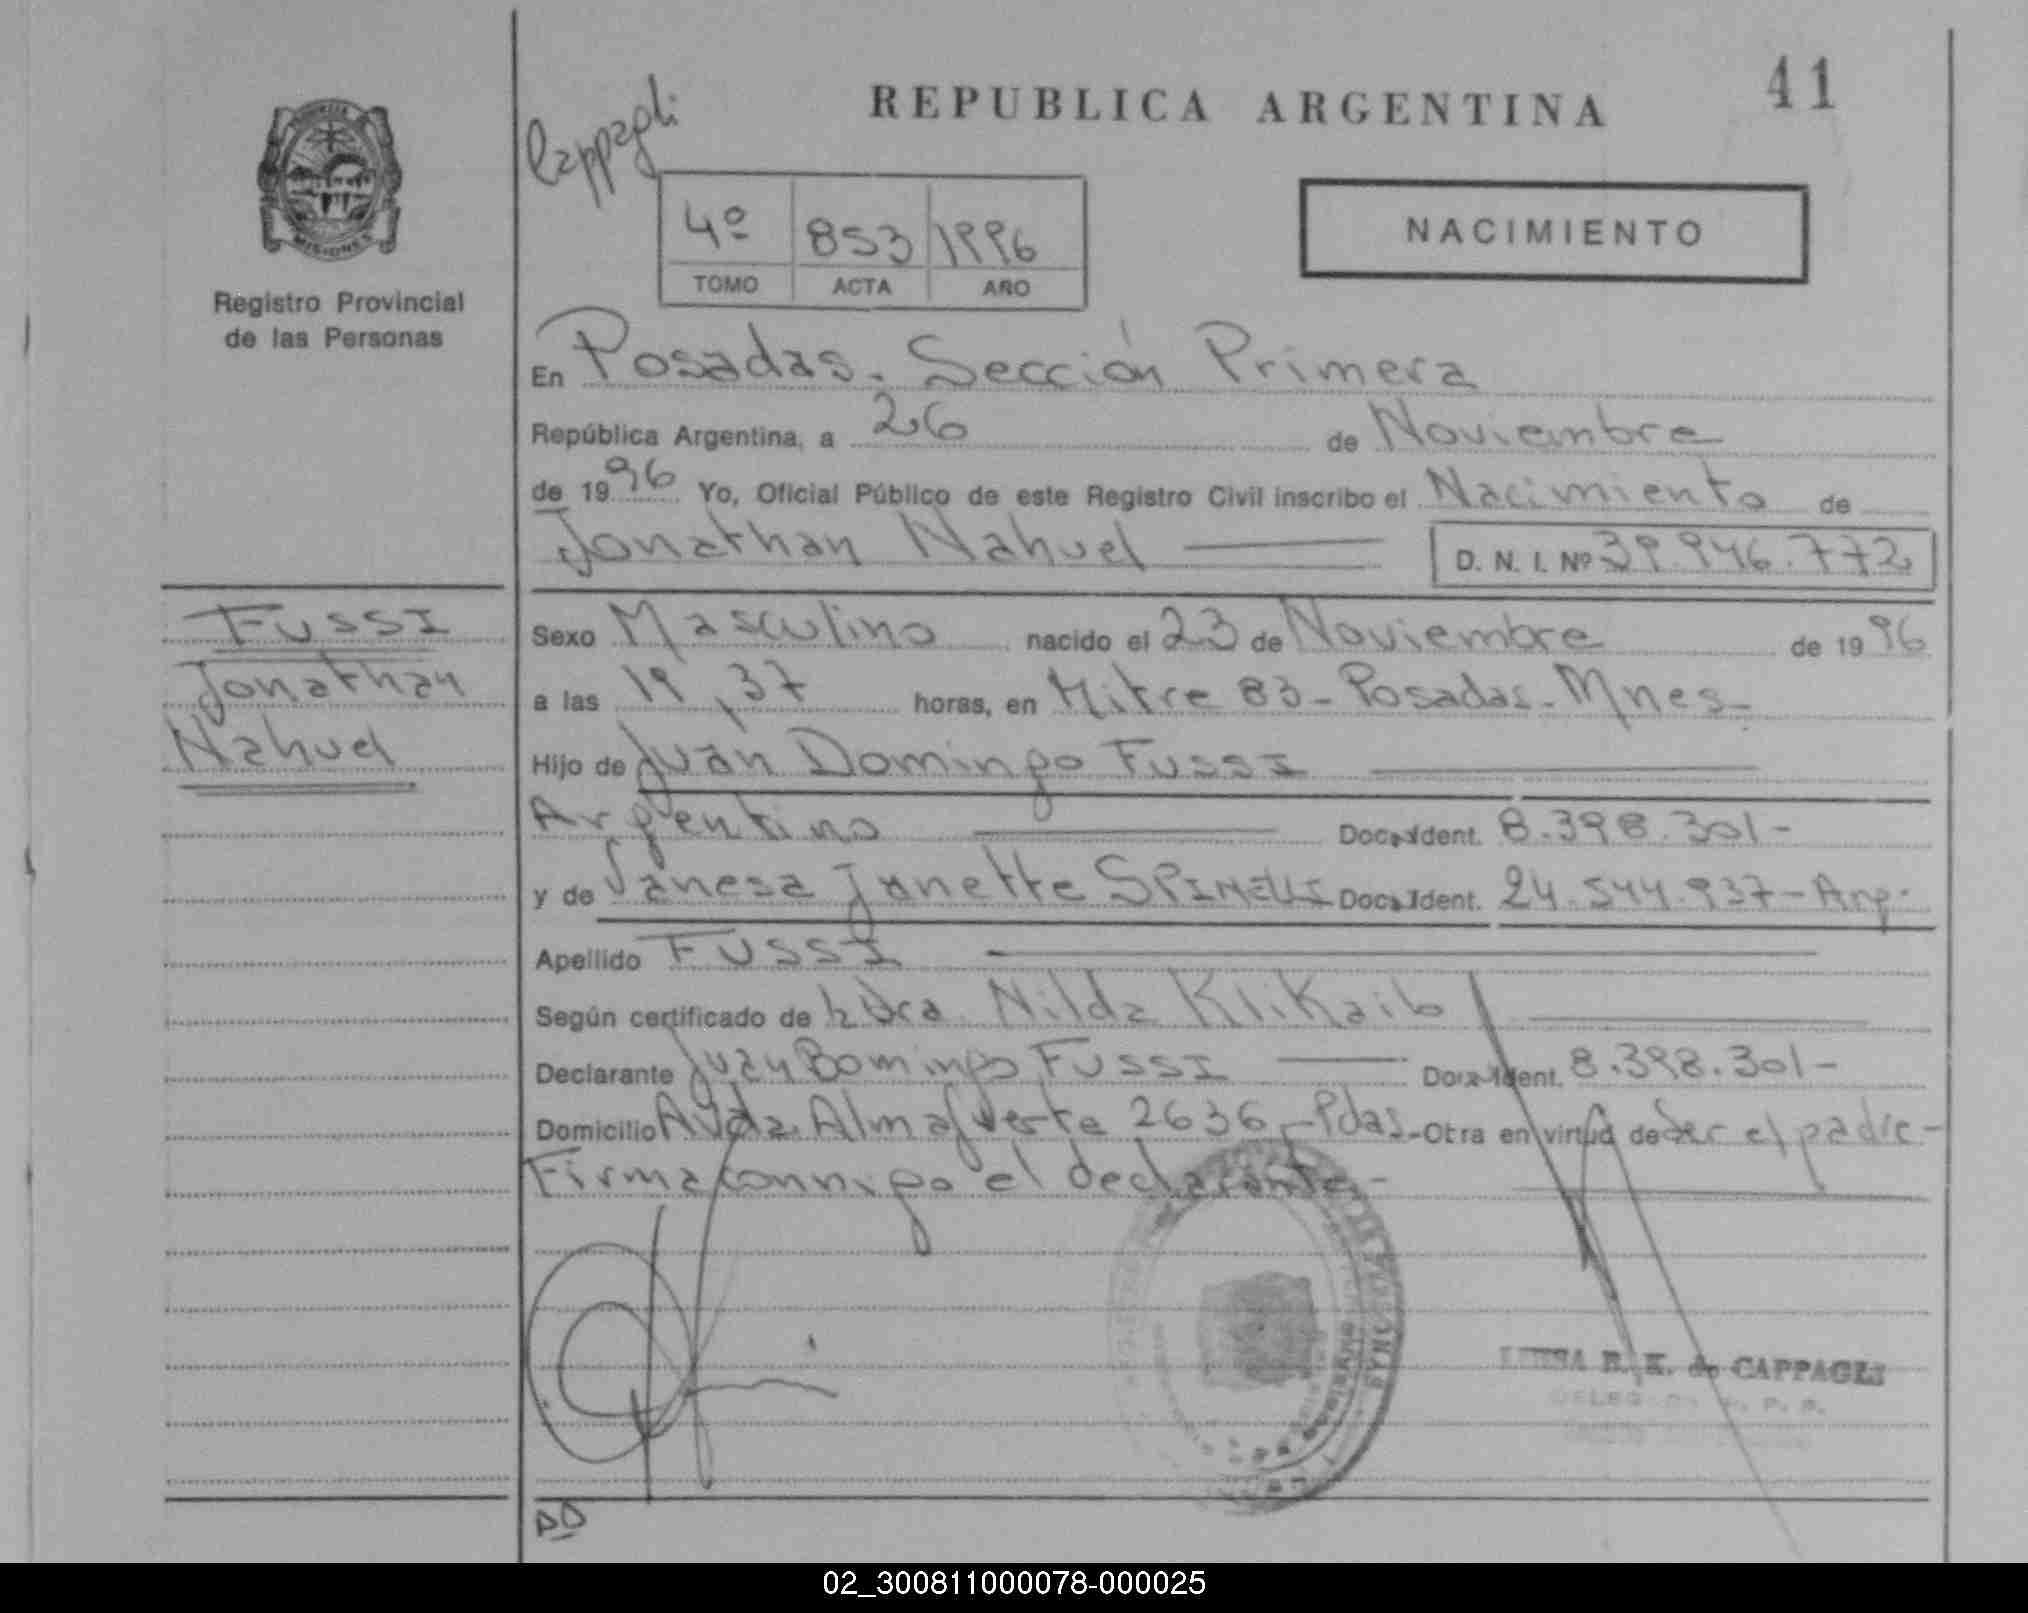 REPUBLICA ARGENTINA
41
Cappagli
4º 853 1996
TOMO ACTA AÑO
NACIMIENTO
MISIONES
Registro Provincial
de las Personas
En Posadas. Sección Primera
República Argentina, a 26 de Noviembre
de 1996 Yo, Oficial Público de este Registro Civil inscribo el Nacimiento de
Jonathan Nahuel D. N. I. Nº 39.946.772
FUSSI
Jonathan
Nahuel
Sexo Masculino nacido el 23 de Noviembre de 1996
a las 19,37 horas, en Mitre 83 - Posadas - Mnes -
Hijo de Juan Domingo FUSSI
Argentino Doc. Ident. 8.398.301-
y de Vanesa Janette SPINELLI Doc. Ident. 24.544.937 - Arg.
Apellido FUSSI
Según certificado de Nilda Klikailo
Declarante Juan Domingo FUSSI Doc. Ident. 8.398.301-
Domicilio Avda. Almafuerte 2636 - Pdas - Otra en virtud de ser el padre -
Firma conmigo el declarante. -
LUISA E. K. de CAPPAGLI
02_300811000078-000025